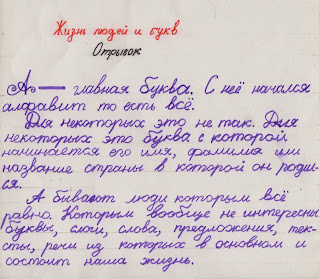 Жизнь людей и букв
Отрывок
А — главная буква. С неё начался
алфавит то есть всё.
Для некоторых это не так. Для
некоторых это буква с которой
начинается его имя, фамилия или
название страны в которой он родил-
ся.
А бывают люди которым всё
равно. Которым вообще не интересны
буквы, слоги, слова, предложения, тек-
сты, речи из которых в основном и
состоит наша жизнь.